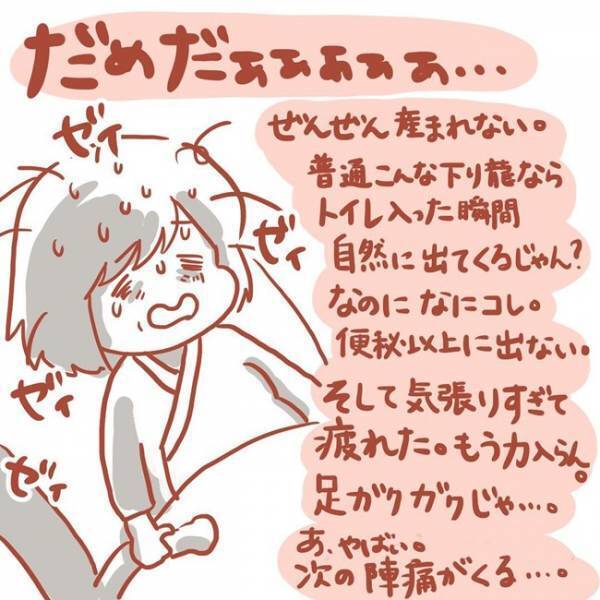 だめだぁぁぁぁぁ…
ゼィー
ぜんぜん産まれない。
普通こんな下り龍なら
トイレ入った瞬間
ゼィ
自然に出てくるじゃん?
なのになにコレ。
便秘以上に出ない。
ゼィ
そして気張りすぎて
疲れた。もう力入らん。
ゼィ
足がガクガクじゃ…。
あ、やばい。
次の陣痛がくる…。